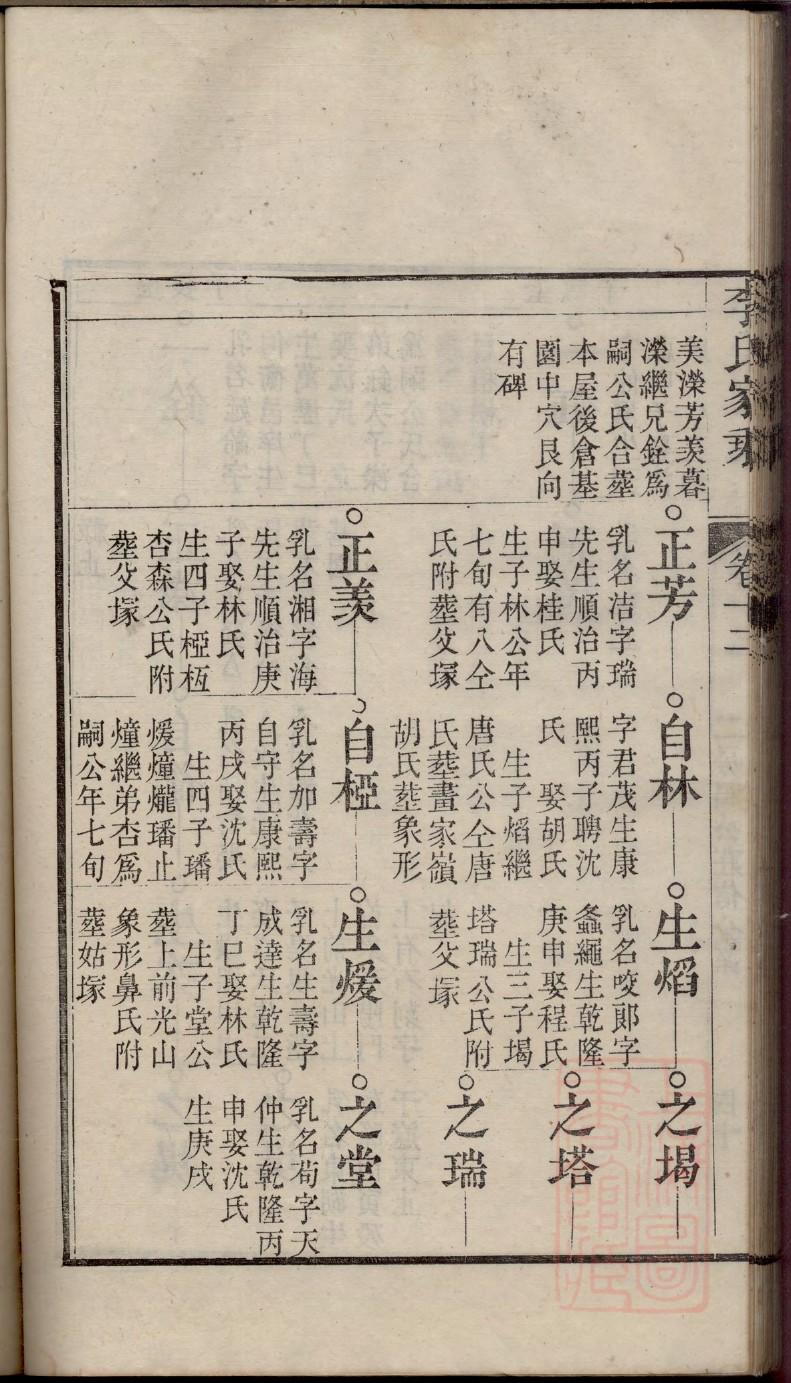 李氏家乘
卷十二
美濚芳羨暮
濚繼兄銓爲
嗣公氏合塟
本屋後倉基
園中穴艮向
有碑
正芳
乳名洁字瑞
先生順治丙
申娶桂氏
生子林公年
七旬有八仝
氏附塟父塚
正羨
乳名湘字海
先生順治庚
子娶林氏
生四子椏枑
杏森公氏附
塟父塚
自林
字君茂生康
熙丙子聘沈
氏　娶胡氏
生子熖繼
唐氏公仝唐
氏塟畫家嶺
胡氏塟象形
自椏
乳名加壽字
自守生康熙
丙戌娶沈氏
生四子璠
煖燑爖璠止
燑繼弟杏爲
嗣公年七旬
生熖
乳名咬郎字
螽繩生乾隆
庚申娶程氏
生三子堨
塔瑞公氏附
塟父塚
生煖
乳名生壽字
成達生乾隆
丁巳娶林氏
生子堂公
塟上前光山
象形鼻氏附
塟姑塚
之堨
之塔
之瑞
之堂
乳名茍字天
仲生乾隆丙
申娶沈氏
生庚戌